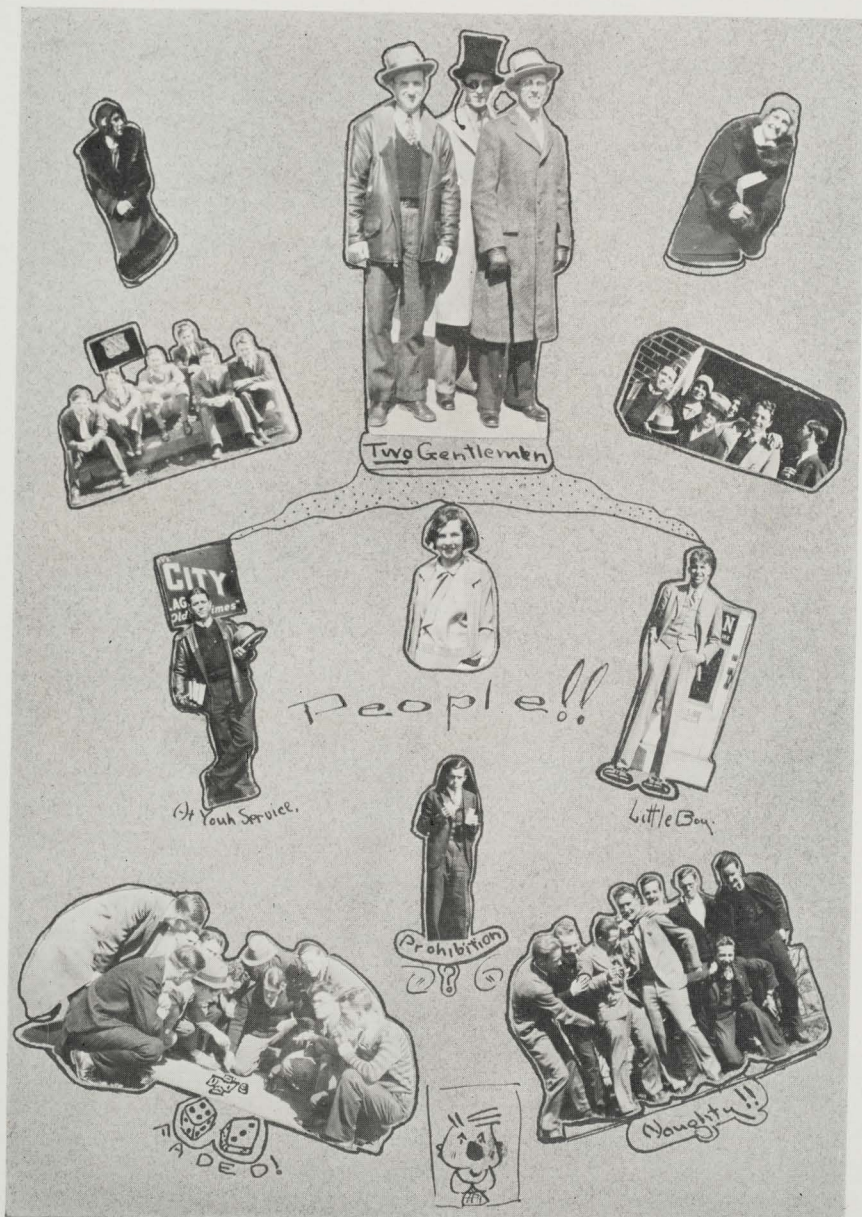 Two Gentlemen
CITY
Old Times
N
People!!
At Your Service.
Little Boy.
Prohibition
?
FADED!
Naughty!!